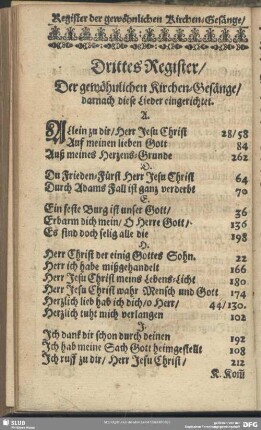 Register der gewöhnlichen Kirchen-Gesänge/
Drittes Register/
Der gewöhnlichen Kirchen-Gesänge/
darnach diese Lieder eingerichtet.
A.
Allein zu dir/Herr Jesu Christ 28/58
Auf meinen lieben Gott 84
Auß meines Herzens-Grunde 262
D.
Du Frieden-Fürst Herr Jesu Christ 64
Durch Adams Fall ist ganz verderbt 70
E.
Ein feste Burg ist unser Gott/ 36
Erbarm dich mein/O Herre Gott/ 136
Es sind doch selig alle die 198
H.
Herr Christ der einig Gottes Sohn. 22
Herr ich habe mißgehandelt 166
Herr Jesu Christ meins Lebens-Licht 180
Herr Jesu Christ wahr Mensch und Gott 174
Herzlich lieb hab ich dich/o Herr/ 44/130.
Herzlich tuht mich verlangen 102
J.
Ich dank dir schon durch deinen 192
Ich hab meine Sach Gott heimgestellt 108
Ich ruff zu dir/Herr Jesu Christ/ 212
K. Kom̃
SLUB
DFG